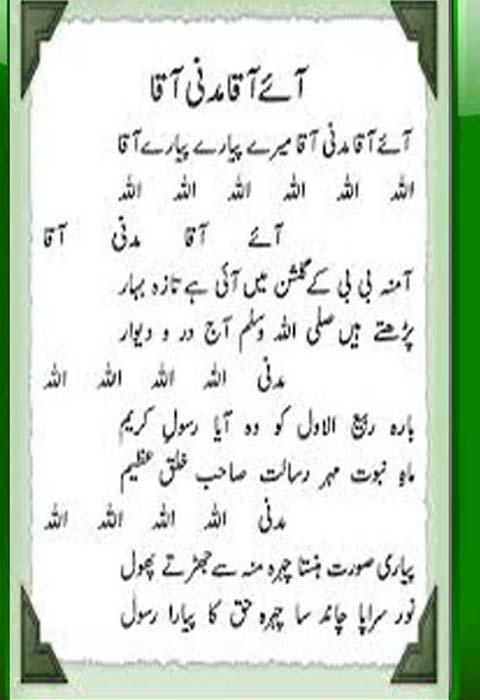 آئے آقا مدنی آقا
آئے آقا مدنی آقا میرے پیارے پیارے آقا
اللہ اللہ اللہ اللہ اللہ اللہ
آئے آقا مدنی آقا
آمنہ بی بی کے گلشن میں آئی ہے تازہ بہار
پڑھتے ہیں صلی اللہ وسلم آج در و دیوار
مدنی اللہ اللہ اللہ اللہ
بارہ ربیع الاول کو وہ آیا رسولِ کریم
ماہِ نبوت مہر رسالت صاحب خلق عظیم
مدنی اللہ اللہ اللہ اللہ
پیاری صورت ہنستا چہرہ منہ سے جھڑتے پھول
نور سراپا چاند سا چہرہ حق کا پیارا رسول